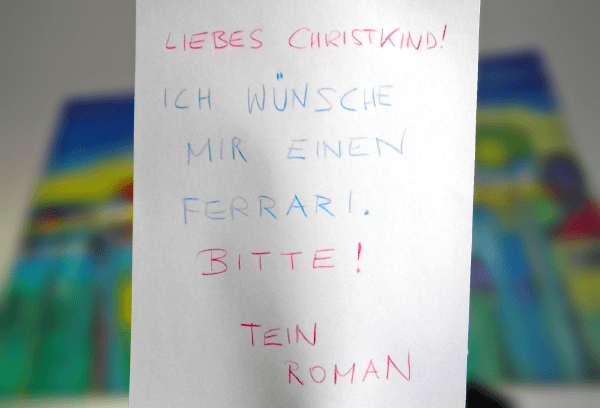 LIEBES CHRISTKIND!
ICH WÜNSCHE
MIR EINEN
FERRARI.
BITTE!
TEIN
ROMAN